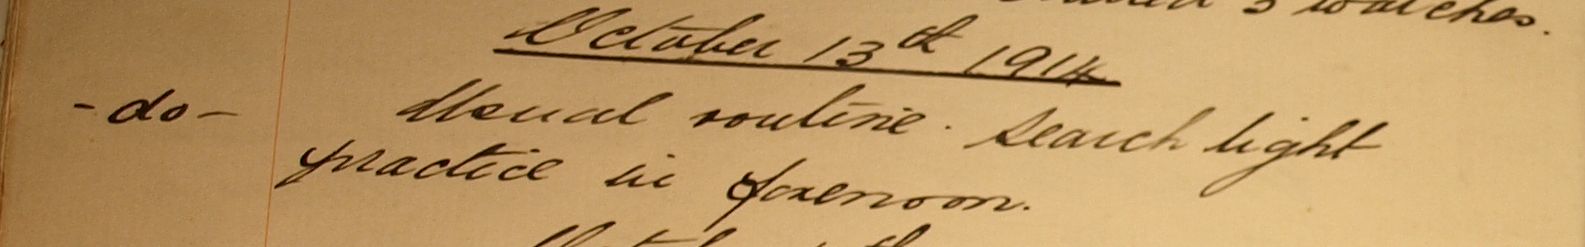 3 watches.
October 13th 1914
-do- Usual routine. Search light
practice in forenoon.